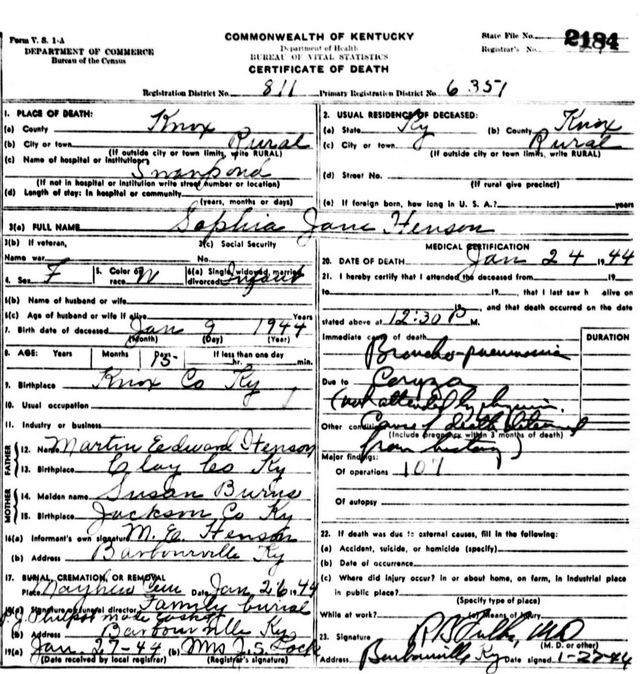 Form V. S. 1-A
DEPARTMENT OF COMMERCE
Bureau of the Census
COMMONWEALTH OF KENTUCKY
Department of Health
BUREAU OF VITAL STATISTICS
CERTIFICATE OF DEATH
State File No. 2184
Registrar's No.
Registration District No. 811 Primary Registration District No. 6351
1. PLACE OF DEATH:
(a) County Knox
(b) City or town Rural
(If outside city or town limits, write RURAL)
(c) Name of hospital or institution: Swanpond
(If not in hospital or institution write street number or location)
(d) Length of stay: In hospital or community
(years, months or days)
2. USUAL RESIDENCE OF DECEASED:
(a) State Ky (b) County Knox
(c) City or town Rural
(If outside city or town limits, write RURAL)
(d) Street No.
(If rural give precinct)
(e) If foreign born, how long in U. S. A.? years
3(a) FULL NAME Sophia Jane Henson
3(b) If veteran, 3(c) Social Security
Name war No.
4. Sex F 5. Color or race W 6(a) Single, widowed, married, divorced Infant
6(b) Name of husband or wife
6(c) Age of husband or wife if alive Years
7. Birth date of deceased Jan 9 1944
(Month) (Day) (Year)
8. AGE: Years Months Days 15 If less than one day
hr. min.
9. Birthplace Knox Co Ky
10. Usual occupation
11. Industry or business
FATHER
12. Name Martin Eedward Henson
13. Birthplace Clay Co Ky
MOTHER
14. Maiden name Susan Burns
15. Birthplace Jackson Co Ky
16(a) Informant's own signature M. E. Henson
(b) Address Barbourville Ky
17. BURIAL, CREMATION, OR REMOVAL
Place Date Jan 26 1944
18(a) Signature of funeral director Family burial
(b) Address Barbourville Ky
19(a) Jan. 27-44 (b) Mrs J. S. Lock
(Date received by local registrar) (Registrar's signature)
MEDICAL CERTIFICATION
20. DATE OF DEATH Jan 24 1944
21. I hereby certify that I attended the deceased from 19
to 19 , that I last saw h alive on
19 , and that death occurred on the date
stated above at 12:30 P M.
Immediate cause of death DURATION
Broncho-pneumonia
Due to Coryza
(not attended by physician.
Other conditions Cause of death determined
(Include pregnancy within 3 months of death)
from history)
Major findings:
Of operations 107
Of autopsy
22. If death was due to external causes, fill in the following:
(a) Accident, suicide, or homicide (specify)
(b) Date of occurrence
(c) Where did injury occur? in or about home, on farm, in Industrial place
in public place?
(Specify type of place)
While at work? (e) Means of injury
23. Signature MD
(M. D. or other)
Address Barbourville Ky Date signed 1-27-44